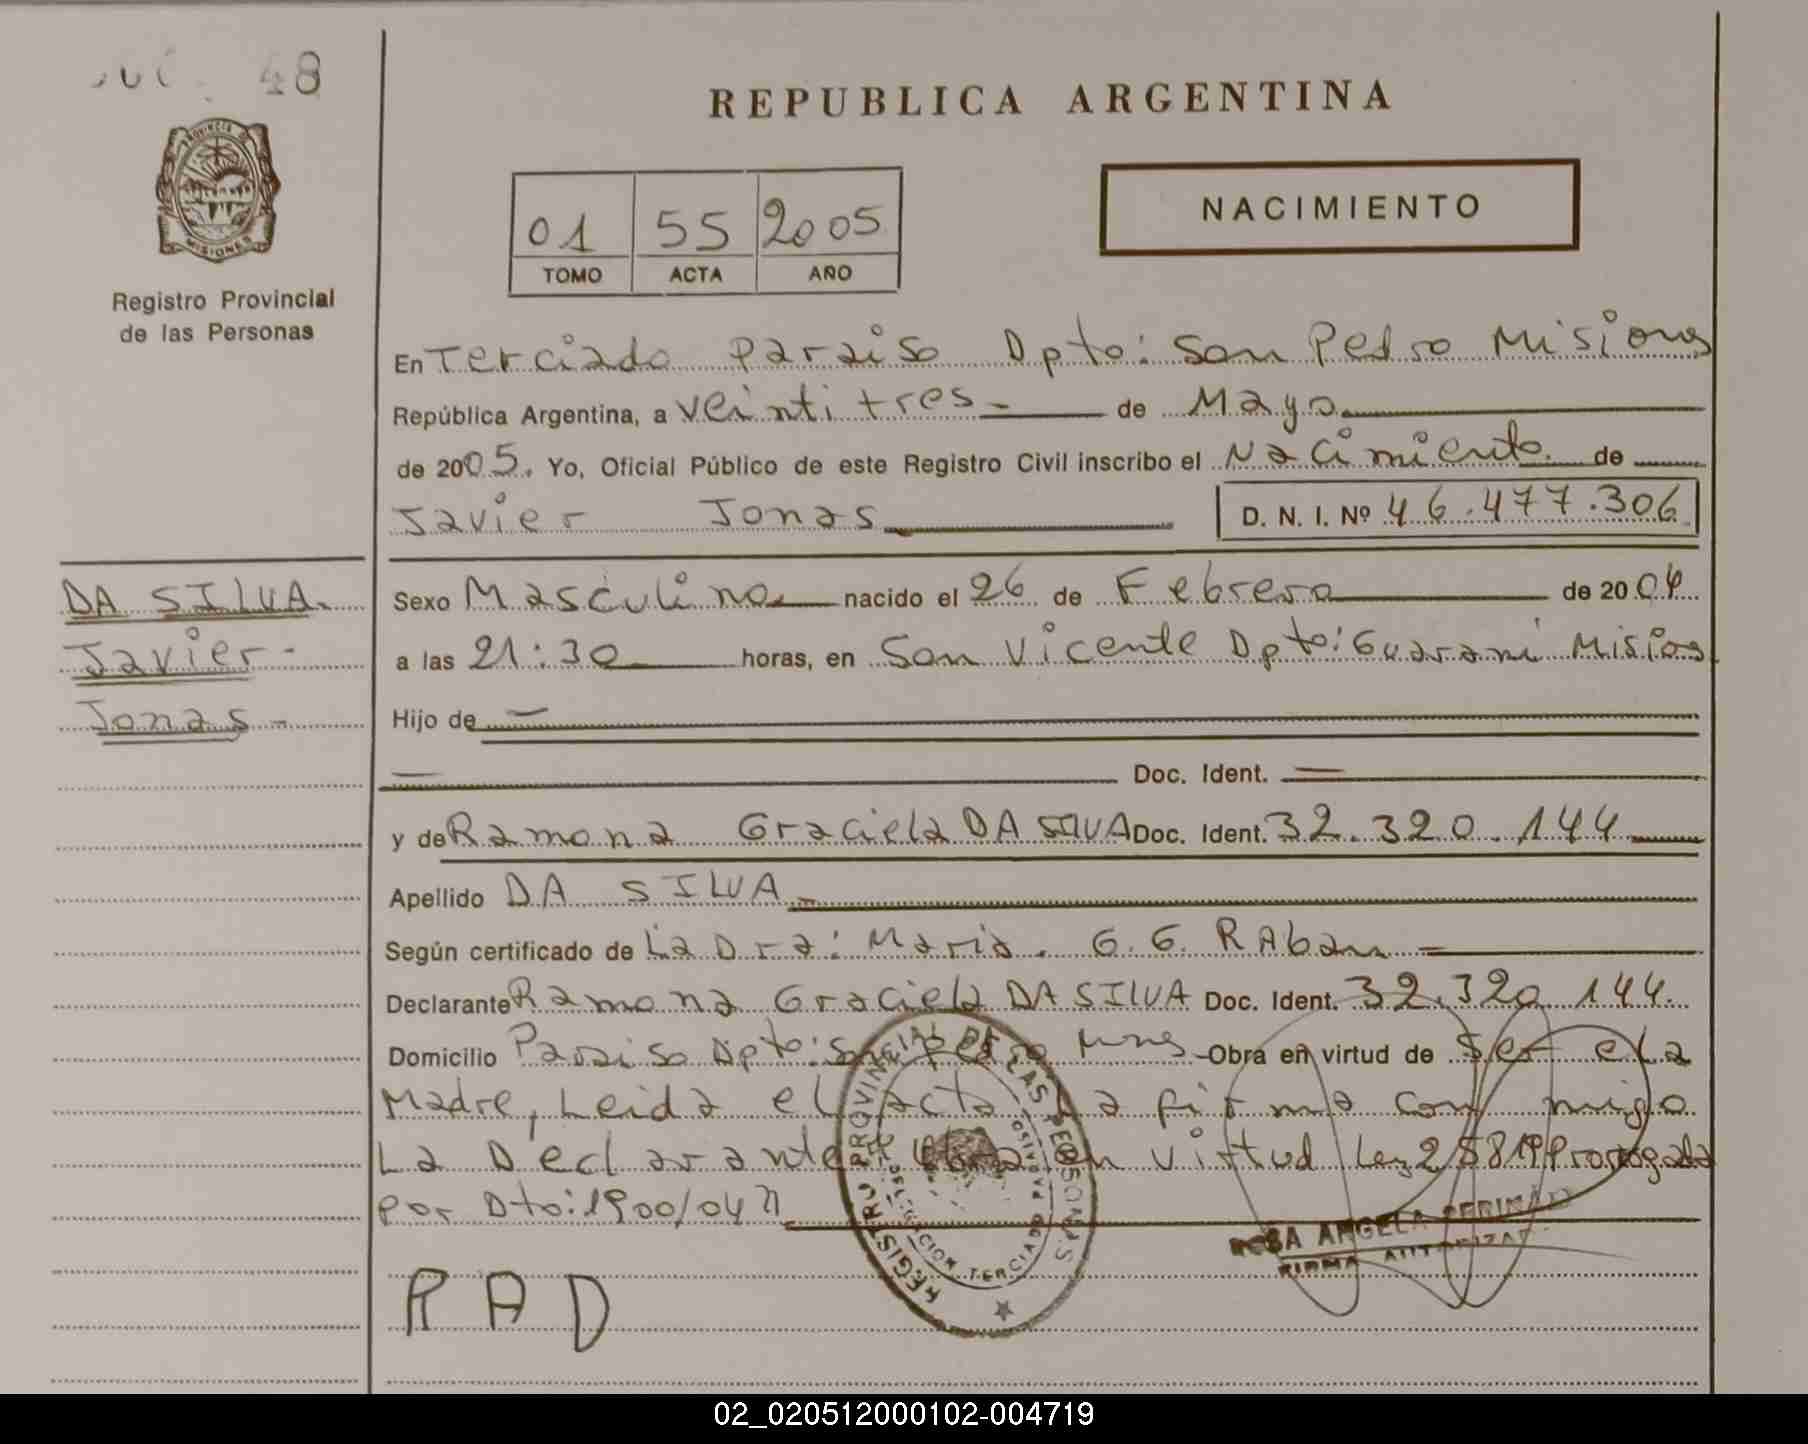 48
PROVINCIA DE
MISIONES
Registro Provincial
de las Personas
REPUBLICA ARGENTINA
01 55 2005
TOMO ACTA AÑO
NACIMIENTO
En Terciado Paraiso Dpto: San Pedro Misiones
República Argentina, a veintitres de Mayo
de 2005. Yo, Oficial Público de este Registro Civil inscribo el Nacimiento de
Javier Jonas D. N. I. Nº 46.477.306
DA SILVA.
Javier-
Jonas-
Sexo Masculino nacido el 26 de Febrero de 2004
a las 21:30 horas, en San Vicente Dpto: Guarani Misions
Hijo de —
— Doc. Ident. —
y de Ramona Graciela DA SILVA Doc. Ident. 32.320.144
Apellido DA SILVA
Según certificado de La Dra: Maria. G. G. RAban
Declarante Ramona Graciela DA SILVA Doc. Ident. 32.320 144.
Domicilio Paraiso Dpto: San Pedro Mnes - Obra en virtud de Ser ella
Madre, Leida el acta La firma con migo
La Declarante en virtud Ley 25819 Prorrogada
por Dto: 1900/04 "
REGISTRO PROVINCIAL DE LAS PERSONAS
DELEGACION TERCIADO PARAISO
ROSA ANGELA
FIRMA AUTORIZAD
RAD
02_020512000102-004719